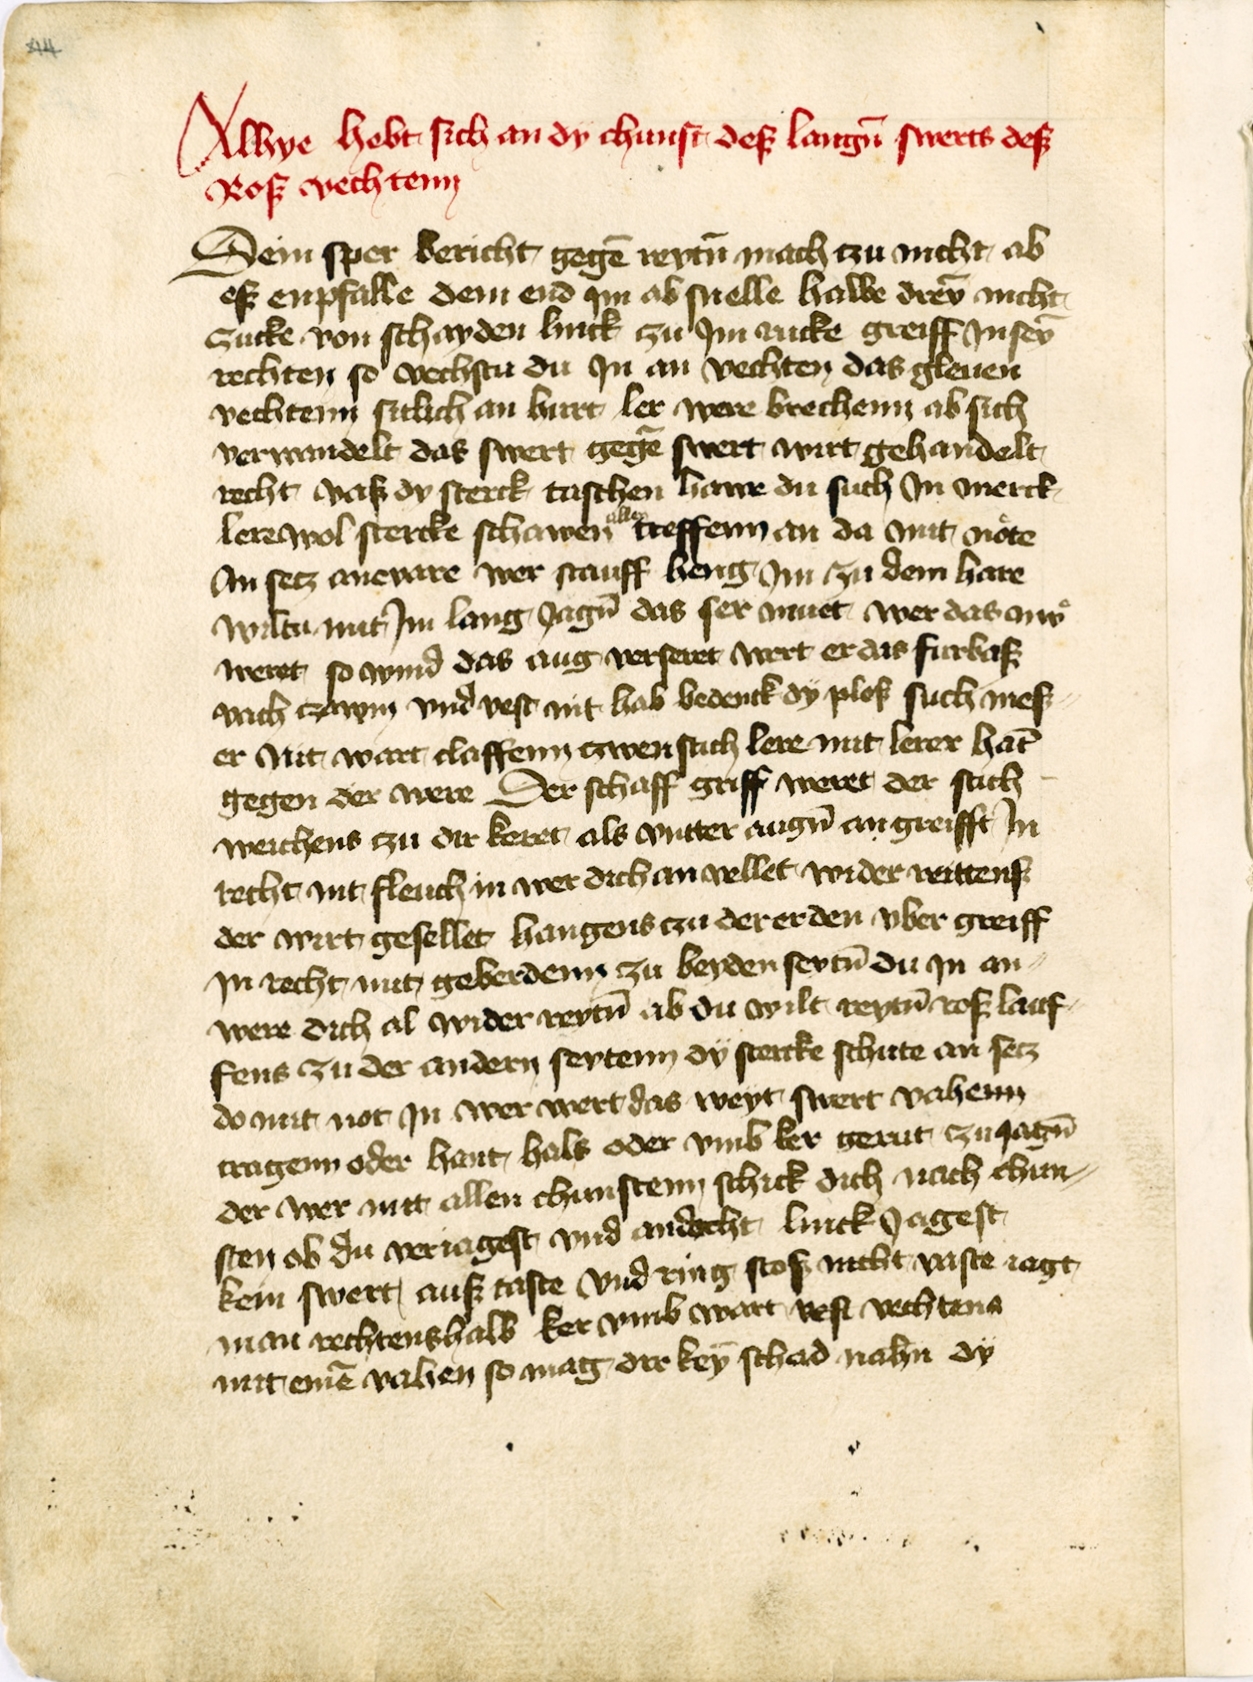 44
Alhye hebt sich an dy chunst deß langn̄ swerts deß
Roß vechtenn
Dein sper bericht gegē reytn̄ mach zu nicht ab
eß enpfalle dem end Im ab snelle halbe dreÿ nicht
zucke von schayden linck zu Im rucke greiff In seȳ
rechten so vechstu du In an vechten das gleuen
vechtenn sitlich an hurt ler were brechenn ab sich
verwandelt das swert gegē swert wirt gehandelt
recht vaß dy sterck taschen hawe du such In merck
lere wol stercke schawen allen treffenn an da mit nöte
An setz anevare wer stauff heng Im zu dem hare
wiltu mit Im lang Jagn̄ das ser muet wer das mᵉ
weret so wind das aug verseret wert er das furbaß
vach zawm vnd vest nit hab bedenck dy ploß such meß-
er Mit wart claffenn zwen stich lere mit lerer hāt
gegen der were Der schaff griff weret der sich
weichens zu dir keret als vntter augn̄ angreifft In
recht nit fleuch in wer dich an vellet wider reittens
der wirt gesellet hangens zu der erden vber greiff
In recht mit geberdenn zu beyden seytn̄ du In an-
were dich al wider reytn̄ ab du wilt reytn̄ roß lauf-
fens zu der andern seytenn dy stercke schute an setz
do mit not In wer wert das weyt swert vahenn
tragenn oder haut hals oder vmb ker gerut zu Jagn̄
der wer mit allen chunstenn schick dich nach chun-
sten ob du veriagest vnd andecht linck Jagest
kein swert auß taste vnd ring stoß nicht vaste iagt
man rechtenshalb ker vmb wart vest vechtens
mit emē vahen so mag dir keȳ schad nahn dy